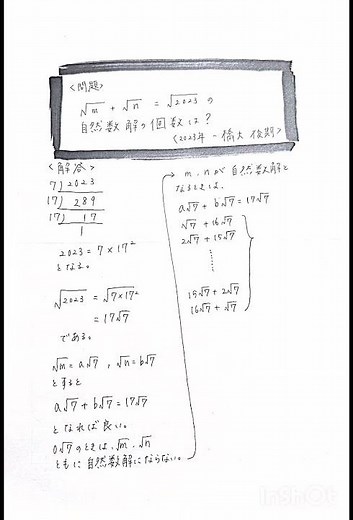 <問題>
√m + √n = √2023 の
自然数解の個数は?
<2023年 一橋大 後期>
<解答>
7)2023
17)289
17)17
1
2023 = 7×17²
となる。
√2023 = √7×17²
= 17√7
である。
√m = a√7 , √n = b√7
とすると
a√7 + b√7 = 17√7
となれば良い。
0√7のときは、√m、√n
ともに自然数解にならない。
m、nが自然数解と
なるときは、
a√7 + b√7 = 17√7
√7 + 16√7
2√7 + 15√7
⋮
15√7 + 2√7
16√7 + √7